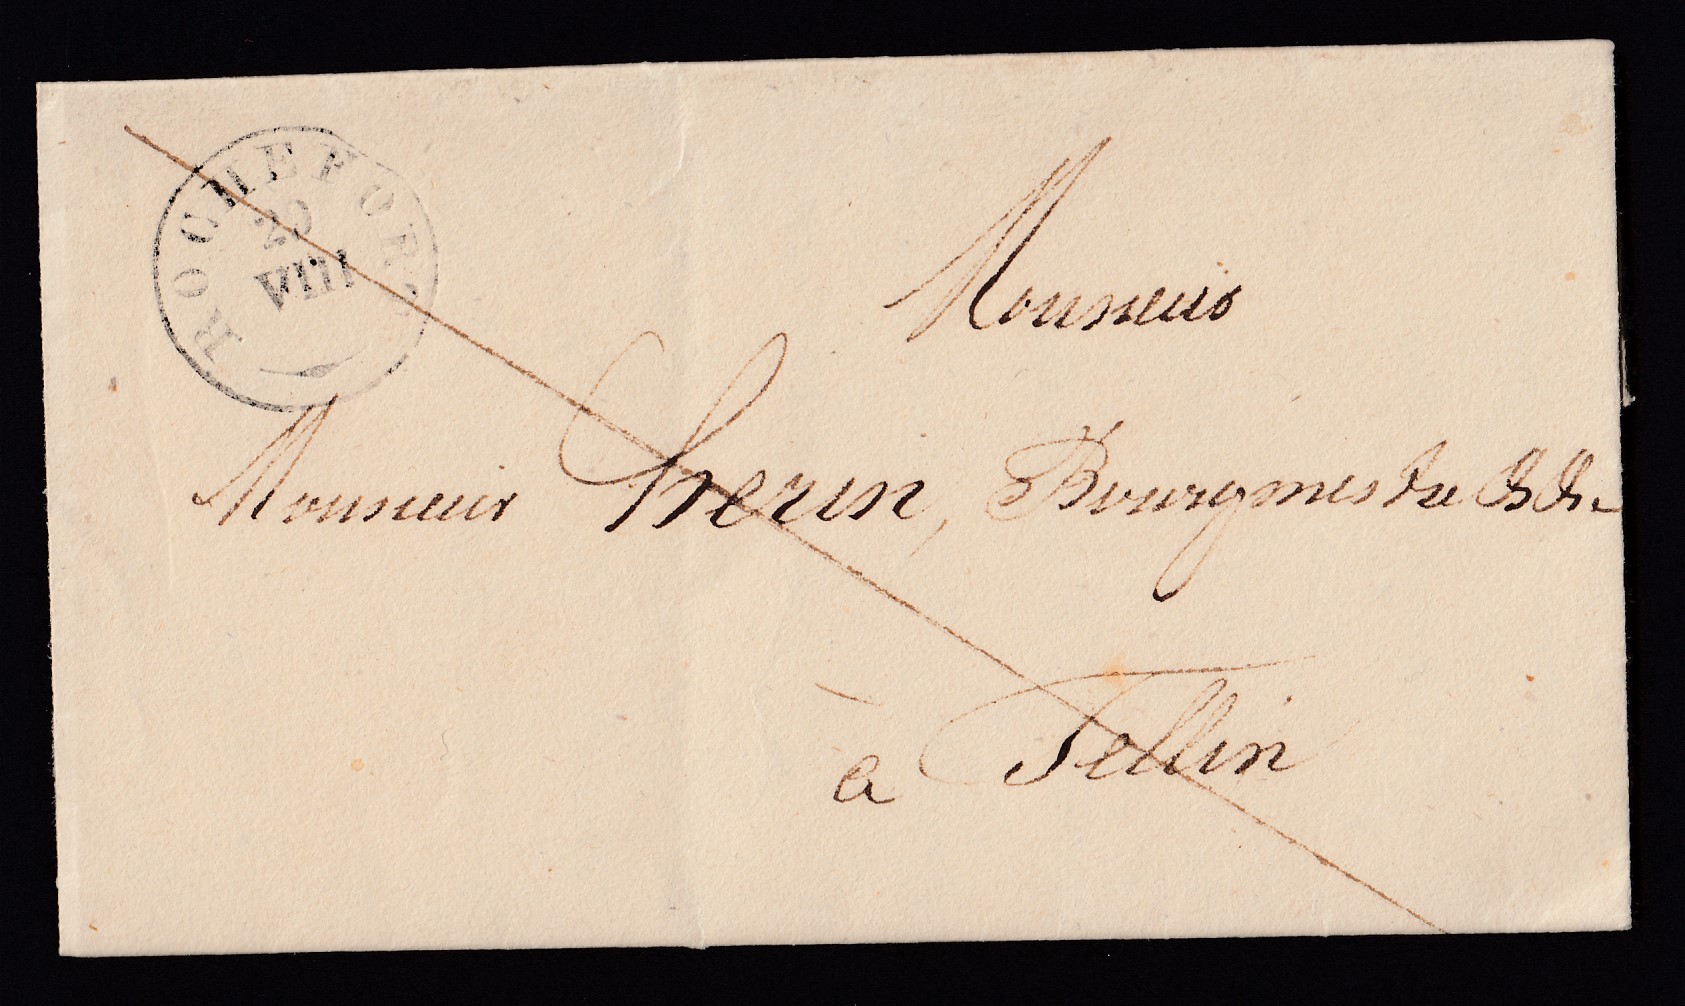 ROCHEFORT
20
VIII
Monsieur
Monsieur Sherin, Bourgmestre &&.
à Tellin